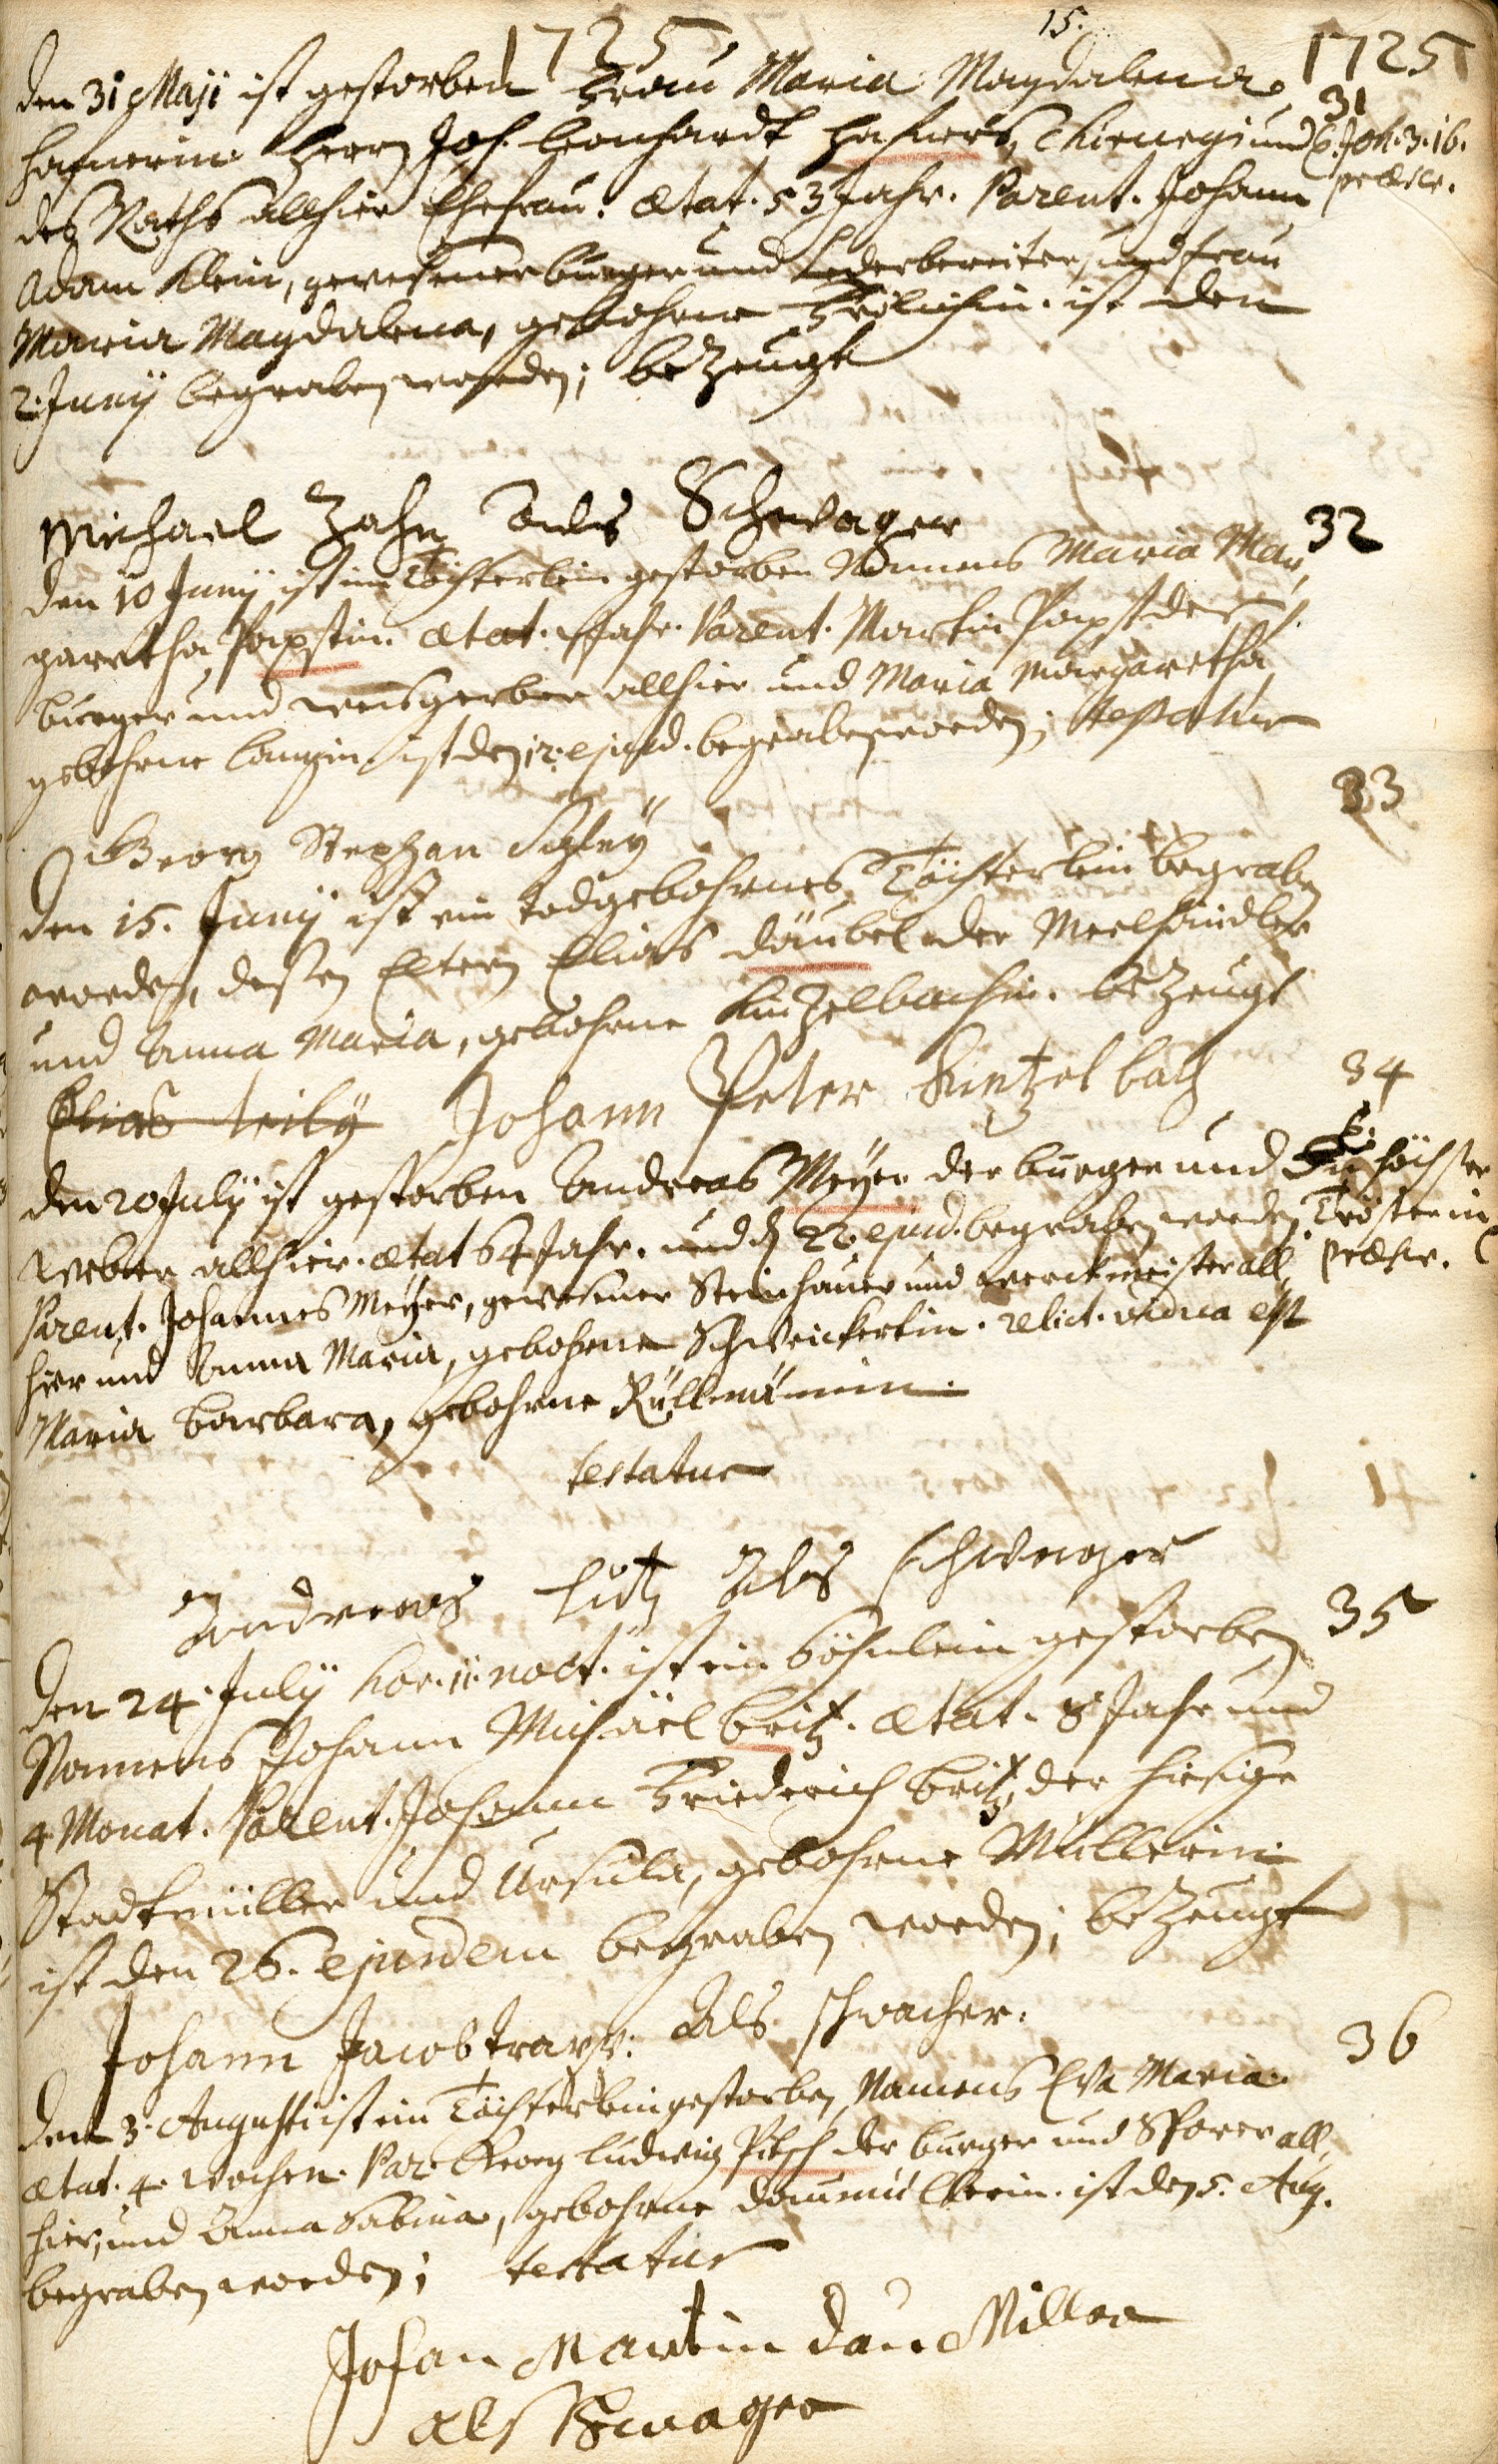 15.
1725 1725
den 31 Maji ist gestorben Frau Maria Magdalena,
Hafnerin Herrn Joh. Leonhardt Hafners, Chirurgi und
31
C. Joh. 3. 16.
des Raths allhier Ehefrau. Ætat. 53 Jahr. Parent. Johann
Adam Klein, gewesener burger und Lederbereiter, und Frau
Maria Magdalena, gebohrne Frölichin. ist den
2. Junij begraben worden; bezeugt
Michael Zahn als Schwager
32
den 10 Junij ist ein Töchterlein gestorben Namens Maria Mar,
garetha Papstin. ætat. Jahr. Parent. Martin Papst der
burger und weisgerber allhier und Maria Margaretha
gebohrne Langin ist den 12. ejusd. begraben worden; testatur
33
Georg Stephan
den 15. Junij ist ein todgebohrnes Töchterlein begraben
worden, dessen Eltern Elias Däubel der Meelhändler
und Anna Maria, gebohrne Kinzelbachin. bezeugt
Elias Johann Peter Kintzelbach
34
den 20 July ist gestorben Andreas Meyer der burger und
höchster
Tröster in
weber allhier. ætat 64 Jahr. und d. 22 ejusd. begraben worden.
Parent. Johannes Meyer, gewesener Steinhauer und werckmeister all,
hier und Anna Maria, gebohrne Schweickertin. relict. vidua est
Maria Barbara, gebohrne
testatur
Andreas Lutz als schwager
35
den 24. July hor. 11. noct. ist ein Söhnlein gestorben
Namens Johann Michäel Britz. ætat. 8 Jahr und
4 Monat. Parent. Johann Friederich Britz, der hiesige
Stadtmüller und Ursula, gebohrne Müllerin
ist den 26. ejusdem begraben worden; bezeugt
Johann Jacob als schwacher.
36
den 3. Augusti ist ein Töchterlein gestorben Namens Eva Maria.
ætat. 4. wochen. Par. Georg Ludwig Pitsch der burger und Sporer all,
hier, und Anna Sabina, gebohrne Daumüllerin. ist den 5. Aug.
begraben worden; testatur
Johan Martin Dau Miller
als Schwager